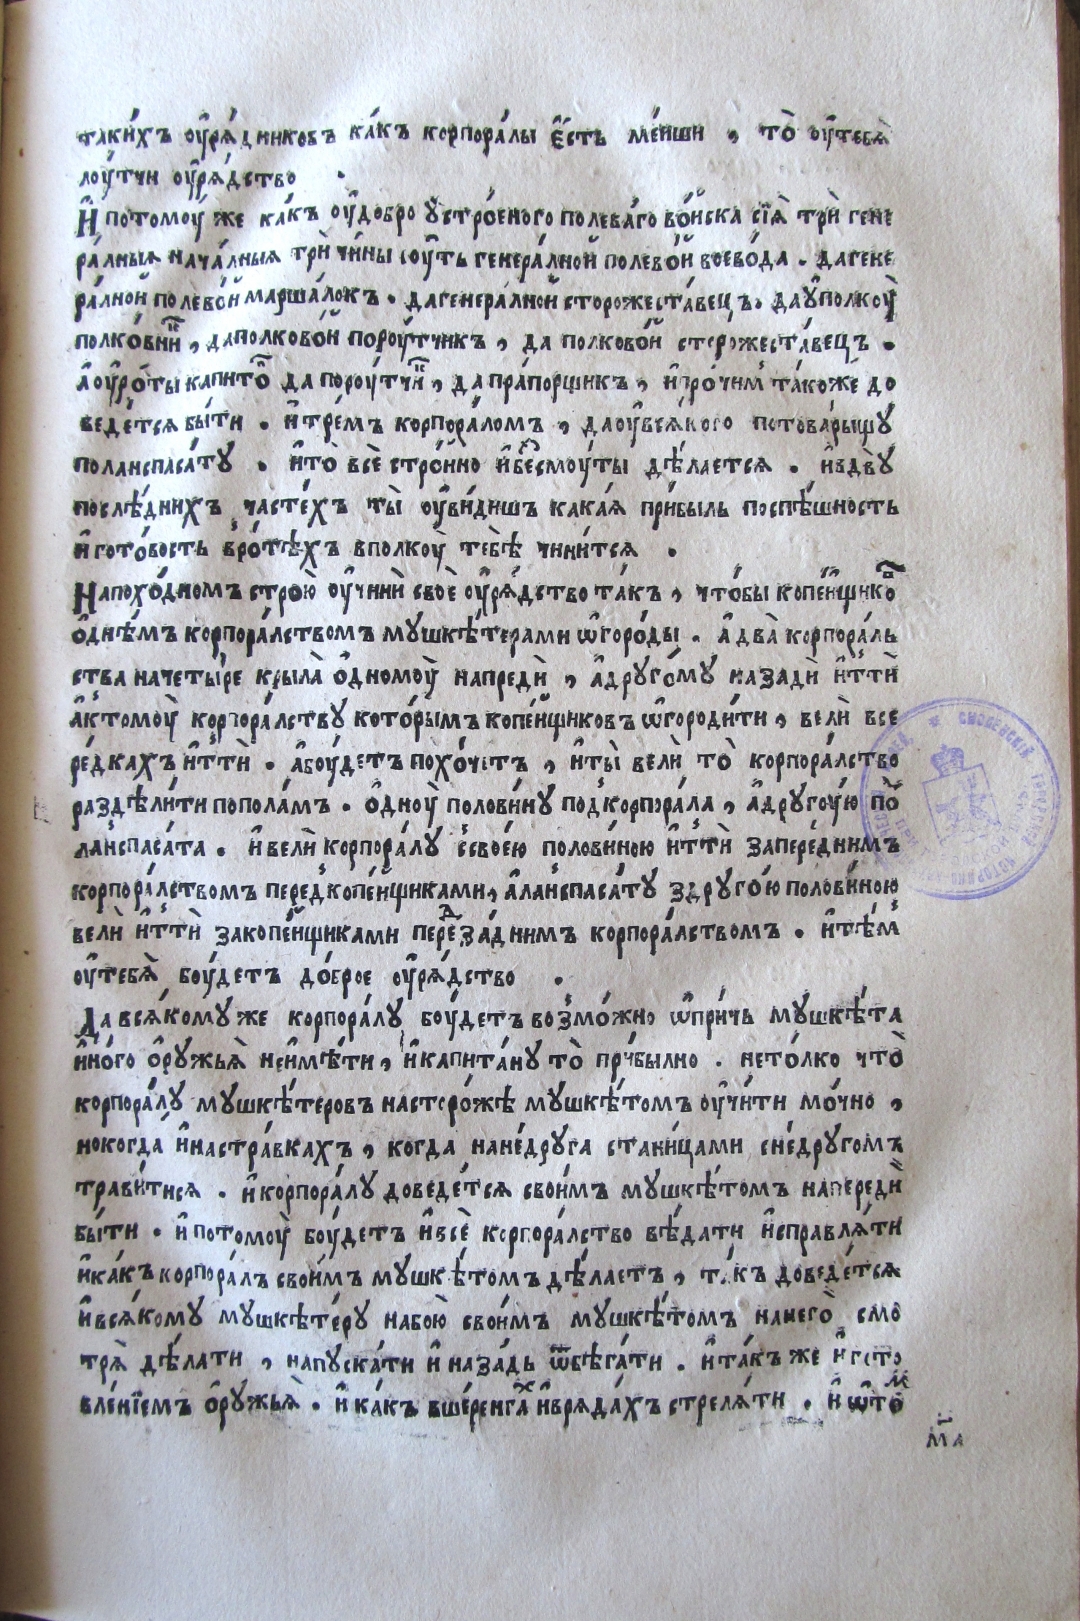 таки́хъ оу҆рѧ́дниковъ ка́къ корпора́лы є҆́сть ме́нши , то̀ оу҆тебѧ̀
лоу́тчи оу҆рѧ́дство .
И҆ потомоу́ же ка́къ оу҆добро ꙋстро́еного полева́го во́йска сїѧ̀ трѝ гене
ра́лныѧ нача́лныѧ трѝ чи́ны соу́ть генера́лной полево́й воево́да . дагене
ра́лной полево́й марша́локъ . дагенера́лной сторожеста́вецъ , даꙋ҆полкоу̀
полко́вни́к , даполково́й пороу́тчикъ , да полково́й сторожеста́вецъ .
А҆оу҆ро́ты капито́н да пороу́тчик , да пра́порщикъ , и҆про́чим та́коже до
веде́тсѧ бы́ти . и҆тре́мъ корпора́ломъ , даоу҆всѧ́кого потова́рыщꙋ
поланспаса́тꙋ . и҆то̀ всѐ стро́йно и҆безсмоу́ты дѣ́лаетсѧ . и҆здвꙋ̀
послѣ́днихъ часте́хъ ты̀ оу҆ви́дишъ кака́ѧ при́быль поспѣ́шность
и҆гото́вость вро́тѣхъ вполкоу̀ тебѣ̀ чини́тсѧ .
Напохо́дномъ строю̀ оу҆чинѝ своѐ оу҆рѧ́дство та́къ , что́бы копе́йщиков
о҆днѣ́мъ корпора́лствомъ мꙋшкѣ́терами ѡ҆горо́ды . а҆ два̀ корпора́ль
ства начеты́ре крыла̀ о҆дномоу̀ напредѝ , а҆дрꙋго́мꙋ назадѝ и҆ттѝ
а҆ктомоу̀ корпора́лствꙋ кото́рымъ копе́йщиковъ ѡ҆городи́ти , велѝ все
ре́дкахъ и҆ттѝ . а҆боу́детъ похо́четъ , и҆ты̀ велѝ то̀ корпора́лство
раздѣли́ти попола́мъ . о҆дноу̀ полови́нꙋ подкорпора́ла , а҆дрꙋго́ую под
ланспаса́та . и҆велѝ корпора́лꙋ ссвое́ю полови́ною и҆ттѝ запере́днимъ
корпора́лствомъ передкопе́йщиками , а҆ланспаса́тꙋ здрꙋго́ю полови́ною
велѝ и҆ттѝ закопе́йщиками передза́днимъ корпора́лствомъ . и҆тѣ́м
оу҆тебѧ̀ боу́детъ до́брое оу҆рѧ́дство .
Да всѧ́комꙋ же корпора́лꙋ боу́детъ возмо́жно ѡ҆при́чь мꙋшкѣ́та
и҆но́го о҆рꙋжьѧ̀ неимѣ́ти , и҆капита́нꙋ то̀ при́былно . нето́лко что̀
корпора́лꙋ мꙋшкѣ́теровъ насторо́жѣ мꙋшкѣ́томъ оу҆чи́ти мо́чно ,
нокогда̀ и҆настра́вкахъ , когда нане́дрꙋга стани́цами сне́дрꙋгомъ
трави́тисѧ . и҆корпора́лꙋ доведе́тсѧ свои́мъ мꙋшкѣ́томъ напередѝ
бы́ти . и҆потомоу̀ боу́детъ и҆всѐ корпора́лство вѣ́дати и҆справлѧ́ти
и҆ка́къ корпора́лъ свои́мъ мꙋшкѣ́томъ дѣ́лаетъ , та́къ доведе́тсѧ
и҆всѧ́комꙋ мꙋшкѣте́рꙋ набою̀ свои́мъ мꙋшкѣ́томъ нанего̀ смо
трѧ̀ дѣ́лати , напꙋска́ти и҆ наза́дь ѿбѣга́ти . и҆та́къ же и҆ гото
вле́нїемъ о҆рꙋжьѧ̀ . и҆ ка́къ вшере́нгах и҆врѧда́хъ стрелѧ́ти . и҆ ѡ҆то́м
м҃а